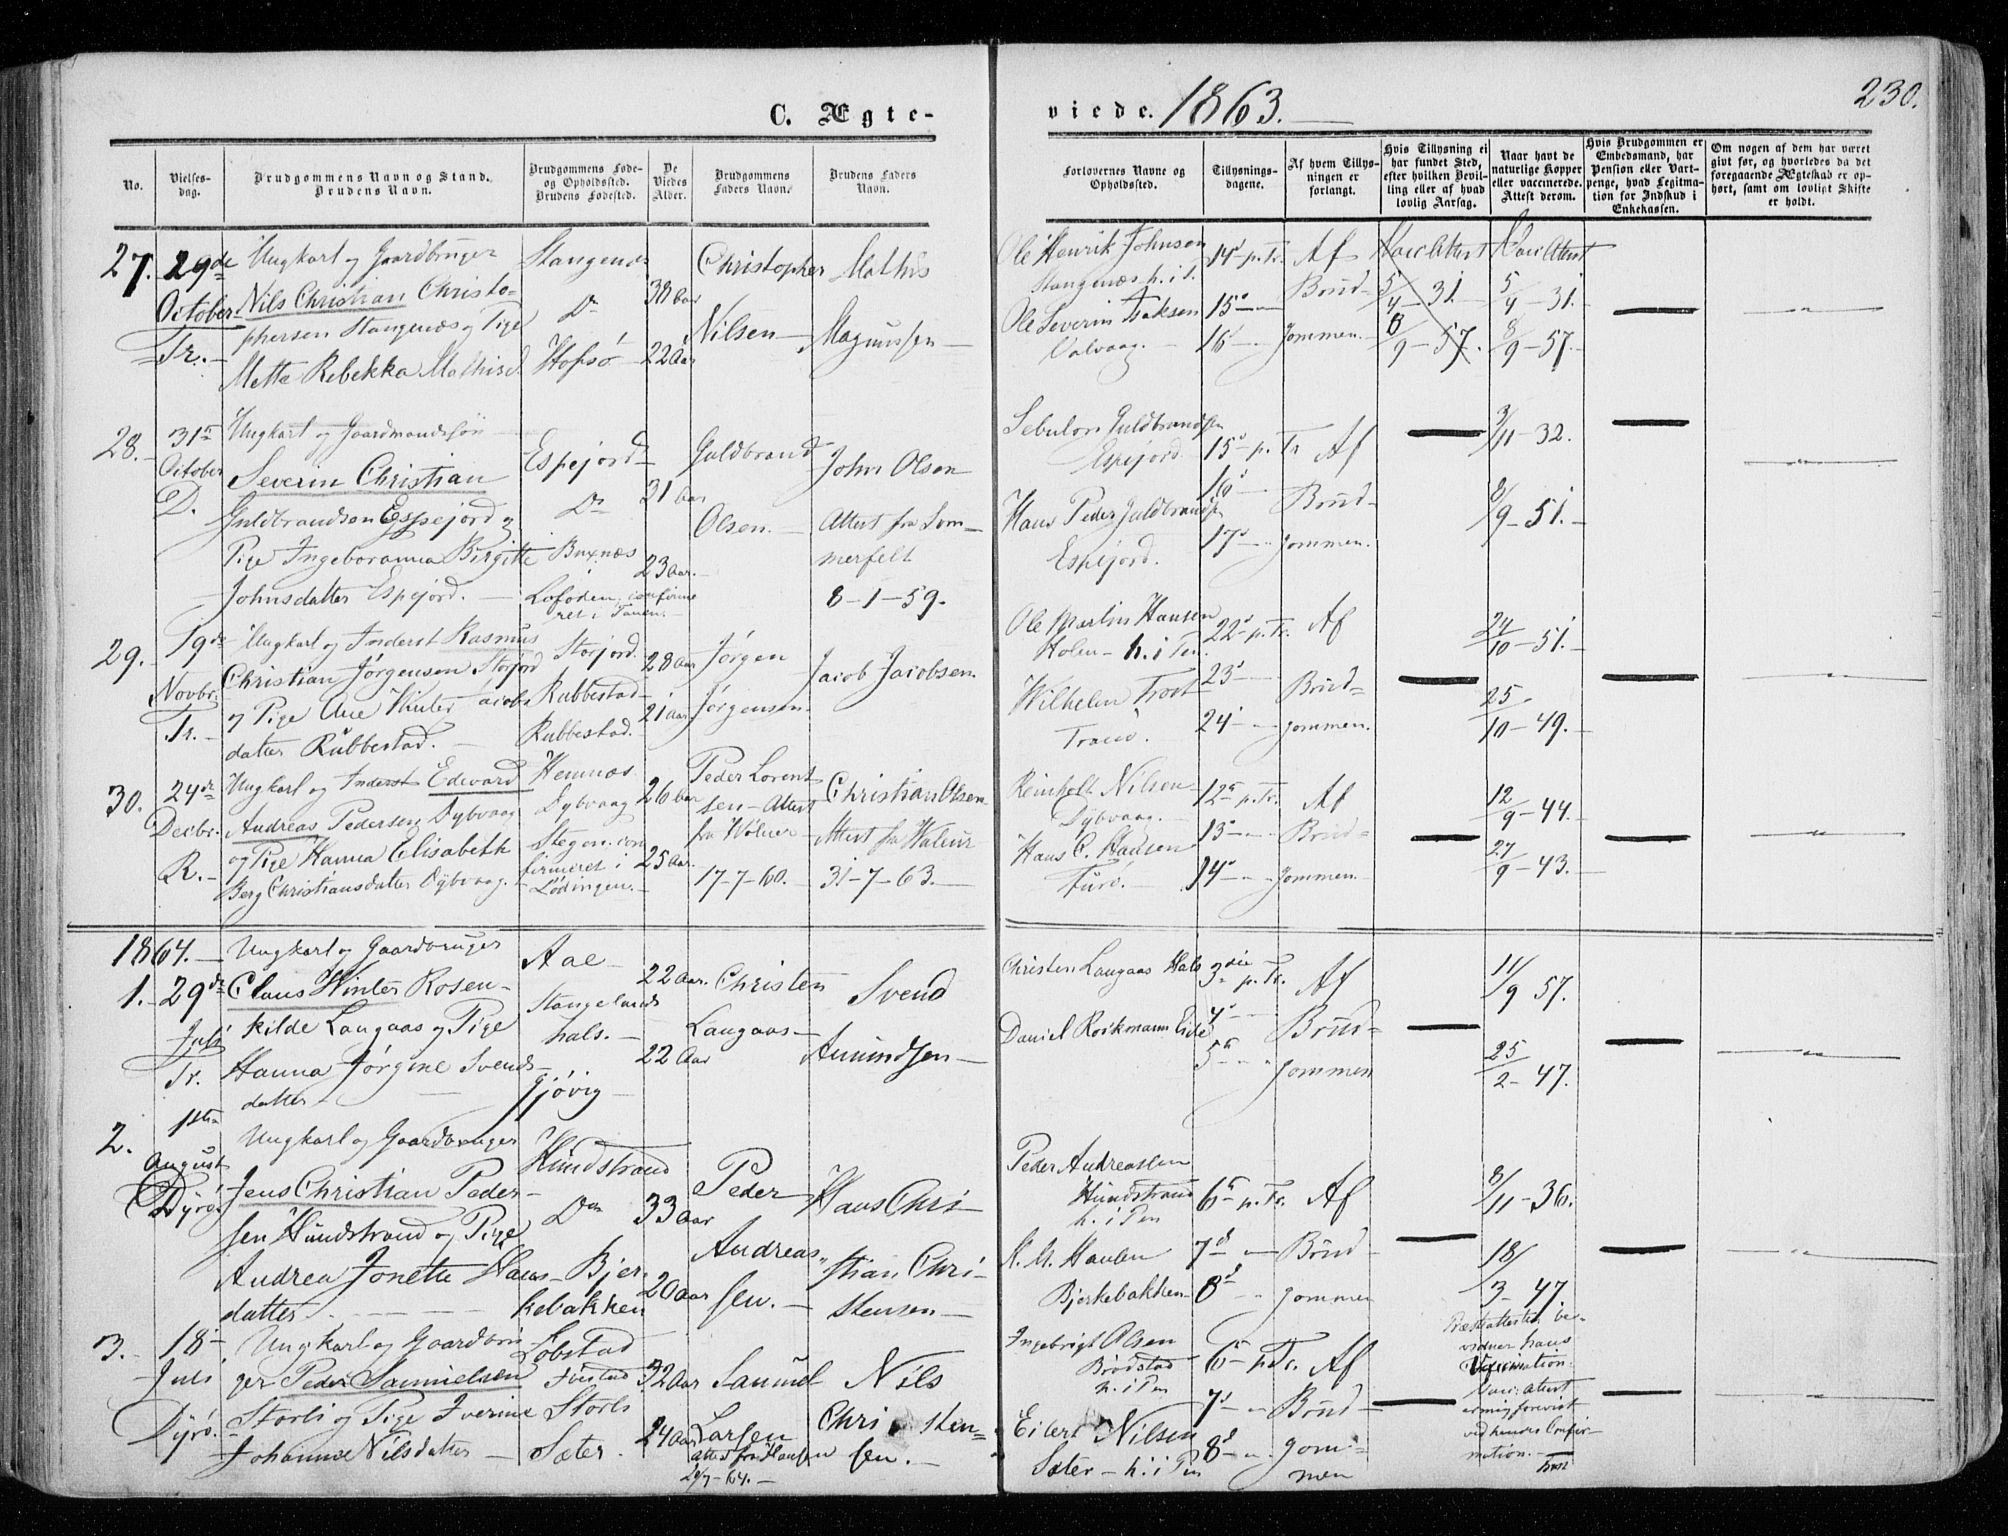 C. Ægte-
viede. 1863.
230.
No.
Vielses-
dag.
Brudgommens Navn og Stand.
Brudens Navn.
Brudgommens Føde-
og Opholdssted.
Brudens Fødested.
De
Viedes
Alder.
Brudgommens
Faders Navn.
Brudens Faders
Navn.
Forlovernes Navne og
Opholdssted.
Tillysnings-
dagene.
Af hvem Tillys-
ningen er
forlangt.
Hvis Tillysning ei
har fundet Sted,
efter hvilken Bevil-
ling eller af hvad
lovlig Aarsag.
Naar havt de
naturlige Kopper
eller vaccinerede.
Attest derom.
Hvis Brudgommen er
Embedsmand, har
Pension eller Vart-
penge, hvad Legitima-
tion for Indskud i
Enkekassen.
Om nogen af dem har været
givt før, og hvorledes da det
foregaaende Ægteskab er op-
hørt, samt om lovligt Skifte
er holdt.
27.
29de
October
Tr.
Ungkarl og Gaardbruger
Nils Christian Christo-
phersen Stangenæs og Pige
Mette Rebekka Mathisd.
Stangenæs
Do
Hofsö
38 Aar
22 Aar
Christopher
Nilsen
Mathis
Magnussen
Ole Henrik Johnsen
Stangenæs h. i S.
Ole Severin Isaksen
Valvaag.
14d p. Tr.
15d
16d
Af
Brud-
gommen.
Vacc Attest
5/4 - 31.
8/9 - 57.
Vacc Attest
5/4 - 31.
8/9 - 57.
28.
31te
October
D.
Ungkarl og Gaardmandssøn
Severin Christian
Guldbrandsen Espejord og
Pige Ingeboranna Birgitte
Johnsdatter Espejord.
Espejord
Do
Buxnæs
Lofoden, confirme
ret i Tanen.
31 Aar
23 Aar.
Guldbrand
Olsen.
John Olsen
Attest fra Som-
merfelt
8-1-59.
Sebulon Guldbrandsen
Espejord
Hans Peder Guldbrandsen
Espejord.
15d p. Tr
16d
17d
Af
Brud-
gommen.
3/11 - 32.
8/9 - 51.
29.
19de
Novbr.
Tr.
Ungkarl og Inderst Rasmus
Christian Jørgensen Storjord
og Pige Ane Winter Jacobs
datter Rubbestad.
Storjord.
Rubbestad
Rubbestad.
28 Aar
21 Aar
Jørgen
Jørgensen.
Jacob Jacobsen.
Ole Martin Hansen
Holm - h. i Pen.
Wilhelm Trost
Tranø.
22d p. Tr.
23d
24d
Af
Brud-
gommen.
24/10 - 51.
25/10 - 49.
30.
24de
Decbr.
R.
Ungkarl og Inderst Edevard
Andreas Pedersen Dybvaag
og Pige Hanna Elisabeth
Berg Christiansdatter Dybvaag.
Hemnæs
Dybvaag
Stegen con
firmeret i
Lödingen.
26 Aar
25 Aar.
Peder Lorent
sen - Attest
fra Wolner
17-7-60.
Christian Olsen
Attest fra Walnur
31-7-63.
Reinholt Nilsen
Dybvaag.
Hans C. Hansen
Furö.
12te p. Tr.
13d
14d
Af
Brud-
gommen.
12/9 - 44.
27/9 - 43.
1864.
1.
29de
Juli
Tr.
Ungkarl og Gaardbruger
Claus Winter Rosen-
kilde Langaas og Pige
Hanna Jørgine Svends-
datter
Aae
Stangelands
hals.
Gjövig
22 Aar.
22 Aar
Christen
Langaas
Svend
Amundsen
Christen Langaas Hals
Daniel Roikmann Eide
3die p. Tr.
4d
5te
Af
Brud-
gommen
11/9 57.
25/2 - 47.
2.
1ste
August
Dyrö.
Ungkarl og Gaardbruger
Jens Christian Peder-
sen Hundstrand og Pige
Andrea Jonette Hans-
datter
Hundstrand
Do
Bjer-
kebakken
33 Aar
20 Aar
Peder
Andreas-
sen.
Hans Chri-
stian Chri-
stensen
Peder Andreassen
Hundstrand
h. i Pen
H. M. Hansen
Bjerkebakken
6te p. Tr.
7d
8d
Af
Brud-
gommen
8/11 - 36.
18/3 - 47.
3.
18
Juli
Dyrö.
Ungkarl og Gaardbru
ger Peder Samuelsen
Storli og Pige Iverine
Johanne Nilsdatter
Storli
Sæter.
32 Aar
24 Aar
Samuel
Larsen
attest fra Hansen
20/7-64.
Nils
Christen-
sen.
Ingebrigt Olsen
Brödstad
h. i Pen
Eilert Nilsen
Sæter - h. i Pen
6te p. Tr.
7d
8d
Af
Brud-
gom-
men
Præsteattesten be-
vidner hans
Vaccination.
Vacc. attest
ved hendes Confir-
mation.